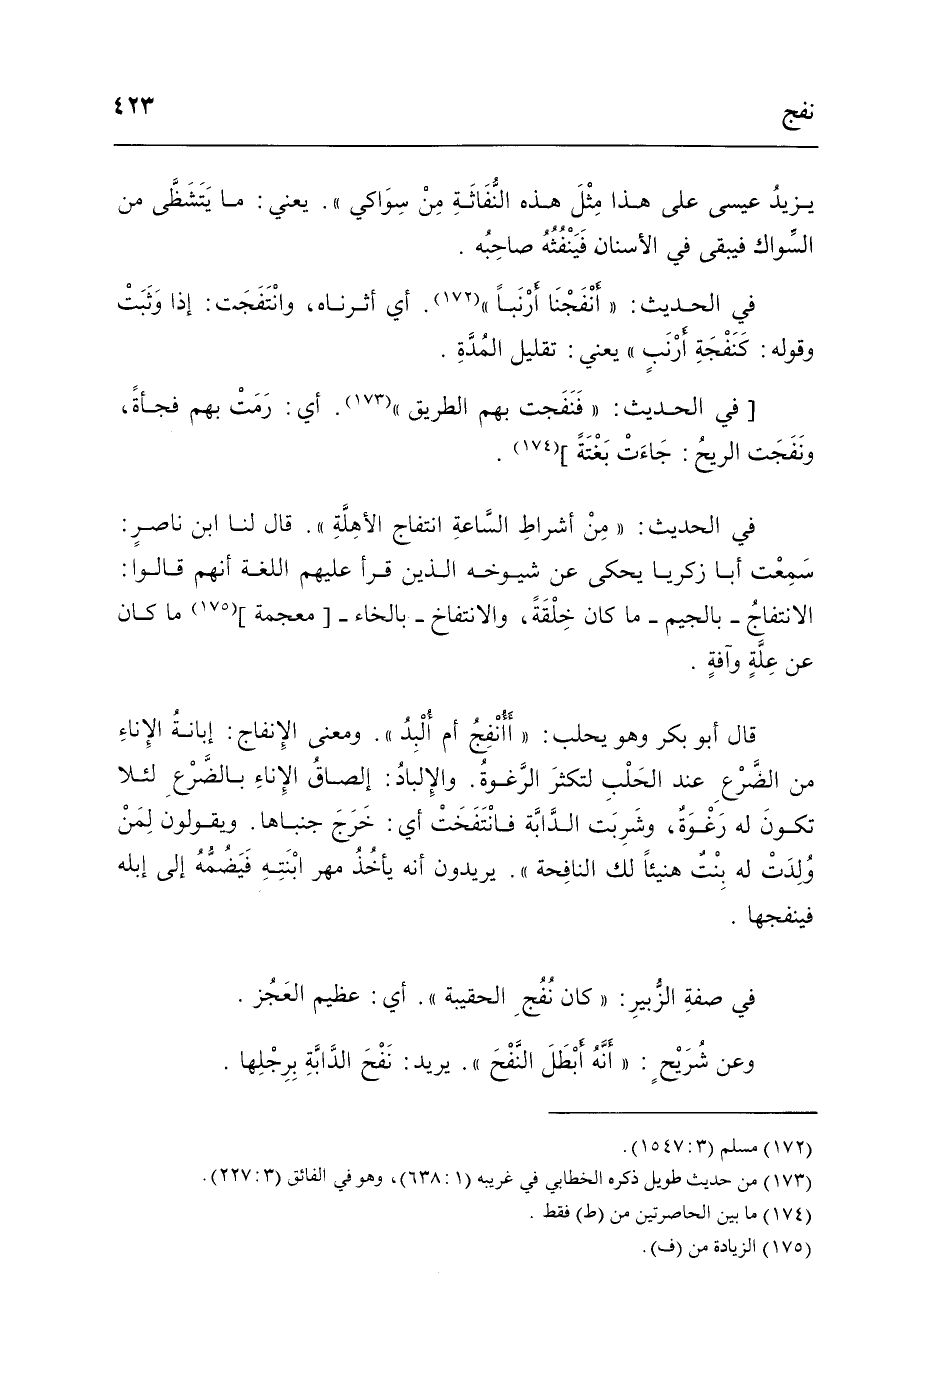 نفج ٤٢٣
يـزيدُ عيسى على هـذا مِثْلَ هـذه النُّفَاثَـةِ مِنْ سِوَاكي » . يعني : مـا يَتَشَظَّى من
السِّواك فيبقى في الأسنان فَيَنْفُثُهُ صاحِبُه .
في الحـديث : « أَنْفَجْنَا أَرْنَبـاً »(١٧٢) . أي أثـرنـاه ، وانْتَفَجَت : إذا وَثَبَتْ
وقوله : كَنَفْجَةِ أَرْنَبٍ » يعني : تقليل المُدَّةِ .
[ في الحـديث : « فَنَفَجت بهم الطريق »(١٧٣) . أي : رَمَتْ بهم فجـأةً ،
ونَفَجَت الريحُ : جَاءَتْ بَغْتَةً ](١٧٤) .
في الحديث : « مِنْ أشراطِ السَّاعةِ انتفاج الأهِلَّةِ » . قال لنـا ابن ناصـرٍ :
سَمِعْت أبـا زكريـا يحكى عن شيـوخـه الـذين قـرأ عليهم اللغـة أنهم قـالـوا :
الانتفاجُ ـ بالجيم ـ ما كان خِلْقَةً ، والانتفاخ ـ بالخاء ـ [ معجمة ](١٧٥) ما كـان
عن عِلَّةٍ وآفةٍ .
قال أبو بكر وهو يحلب : « أَأُنْفِجُ أم أُلْبِدُ » . ومعنى الإِنفاج : إبانـةُ الإِناءِ
من الضَّرْعِ عند الحَلْبِ لتكثرَ الرَّغـوةُ . والإِلبادُ : إلصـاقُ الإِناءِ بـالضَّرْعِ لئـلا
تكـونَ له رَغْـوَةٌ ، وشَرِبَت الـدَّابَّة فـانْتَفَخَتْ أي : خَرَجَ جنبـاها . ويقـولون لِمَنْ
وُلِدَتْ له بِنْتٌ هنيئاً لك النافِحة » . يريدون أنه يأخُذُ مهر ابْنَتِـهِ فَيَضُمُّهُ إلى إبله
فينفجها .
في صفةِ الزُّبيرِ : « كان نُفُجِ الحقيبة » . أي : عظيم العَجُز .
وعن شُرَيْحٍ : « أنَّهُ أَبْطَلَ النَّفْحَ » . يريد : نَفْحَ الدَّابَّةِ بِرِجْلِها .
(١٧٢) مسلم (٣ : ١٥٤٧) .
(١٧٣) من حديث طويل ذكره الخطابي في غريبه (١ : ٦٣٨) ، وهو في الفائق (٣ : ٢٢٧) .
(١٧٤) ما بين الحاصرتين من (ط) فقط .
(١٧٥) الزيادة من (ف) .